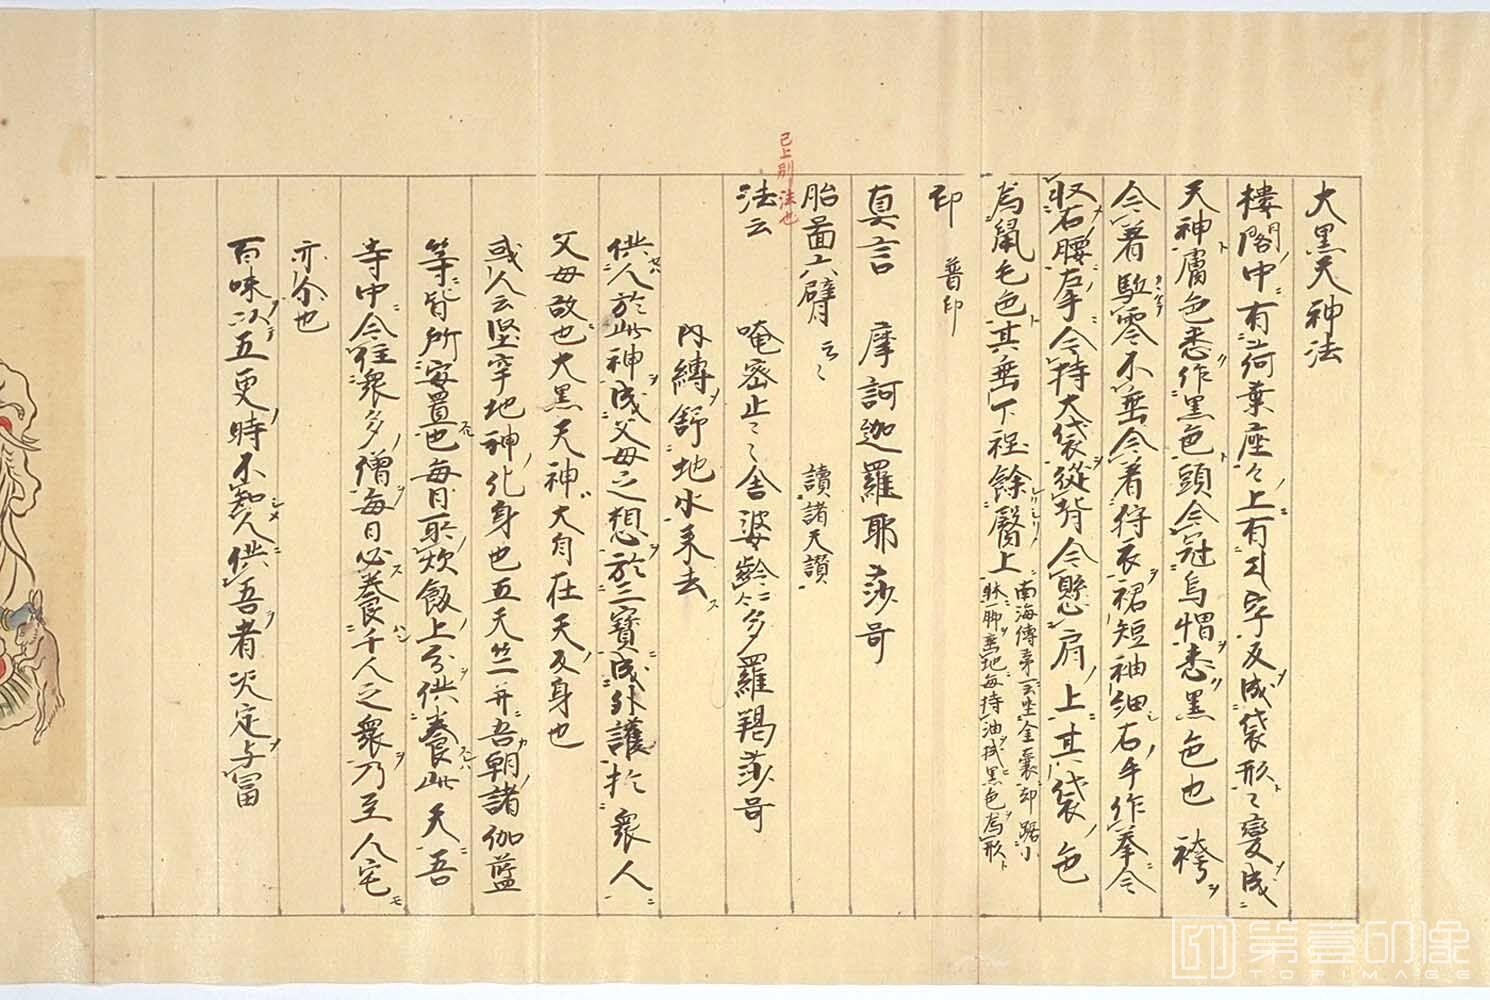 大黒天神法
樓閣中有荷葉座々上有字反成袋形〻變成
天神膚色悉作黒色頭令冠烏帽悉黒色也 袴
令著駈褰不垂令着狩衣裙短袖細右手作拳令
収右腰左手令持大袋從背令懸肩上其袋色
為鼠毛色其垂下程餘臀上
南海傳第一云坐金嚢却踞小
牀一脚垂地毎持油拭黒色為形
印 普印
真言 摩訶迦羅耶莎哥
胎圖六臂云〻 讀諸天讃
已上別法也
法云 唵密止〻舎婆齡多羅羯莎哥
内縛舒地水来去
供人於此神成父母之想於三寶成外護於衆人
父母故也大黒天神大自在天反身也
或人云堅牢地神化身也五天竺并吾朝諸伽藍
等皆所安置也毎日所炊飯上分供養此天吾
寺中令住衆多僧毎日必養千人之衆乃至人宅
亦尒也
百味以五更時不知人供吾者决定与冨
第壹印像
TOPIMAGE